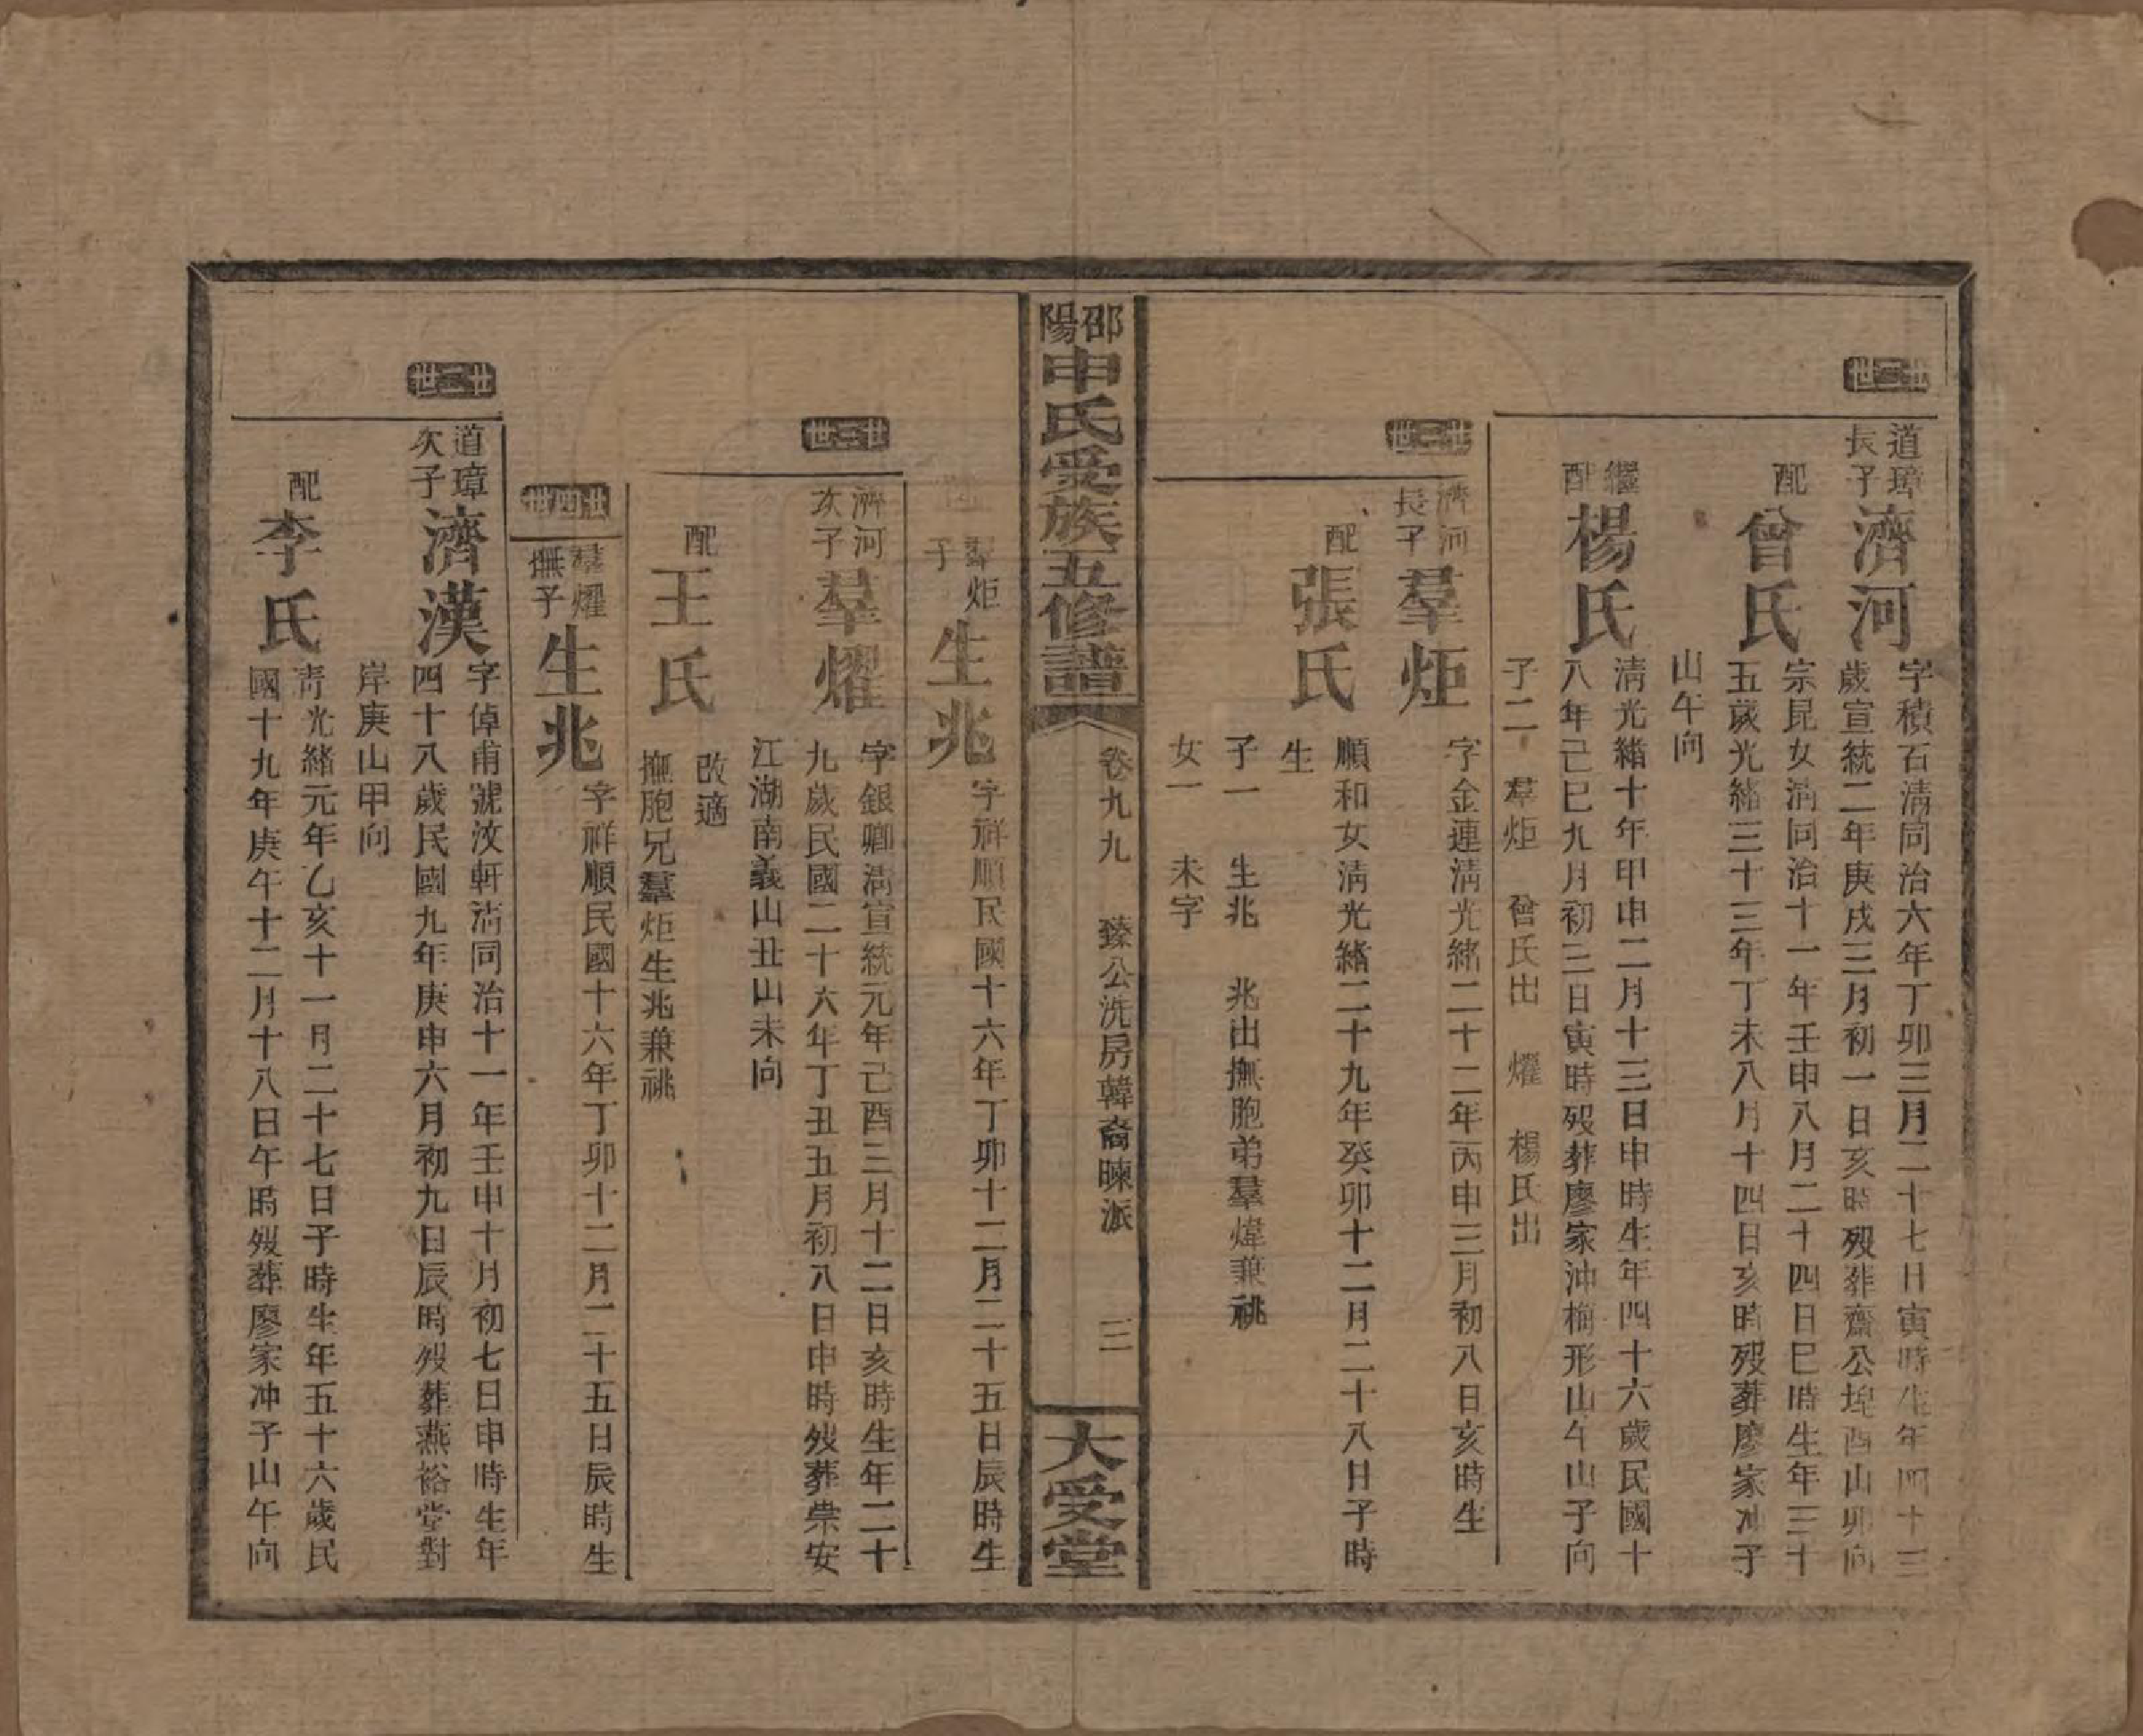 道璋
長子
濟河
字積石清同治六年丁卯三月二十七日寅時生年四十三
歲宣統二年庚戌三月初一日亥時歿葬齋公埦酉山卯向
配
曾氏
宗昆女淸同治十一年壬申八月二十四日巳時生年三十
五歲光緒三十三年丁未八月十四日亥時歿葬廖家冲子
山午向
繼
配
楊氏
淸光緒十年甲申二月十三日申時生年四十六歲民國十
八年己巳九月初三日寅時歿葬廖家沖梅形山午山子向
子二 羣炬 曾氏出 燿 楊氏出
濟河
長子
羣炬
字金連淸光緒二十二年丙申三月初八日亥時生
配
張氏
順和女淸光緒二十九年癸卯十二月二十八日子時
生
子一 生兆 兆出撫胞弟羣煒兼祧
女一 未字
邵陽
申氏受族五修譜
卷九九 臻公洗房韓裔暕派 三
大受堂
羣炬
子
生兆
字祥順民國十六年丁卯十二月二十五日辰時生
濟河
次子
羣燿
字銀卿淸宣統元年己酉三月十二日亥時生年二十
九歲民國二十六年丁丑五月初八日申時歿葬柴安
江湖南義山丑山未向
配
王氏
改適
撫胞兄羣炬生兆兼祧
世四世
羣燿
撫子
生兆
字祥順民國十六年丁卯十二月二十五日辰時生
道璋
次子
濟漢
字倬甫號汝軒淸同治十一年壬申十月初七日申時生年
四十八歲民國九年庚申六月初九日辰時歿葬燕裕堂對
岸庚山甲向
配
李氏
淸光緒元年乙亥十一月二十七日子時生年五十六歲民
國十九年庚午十二月十八日午時歿葬廖家冲子山午向